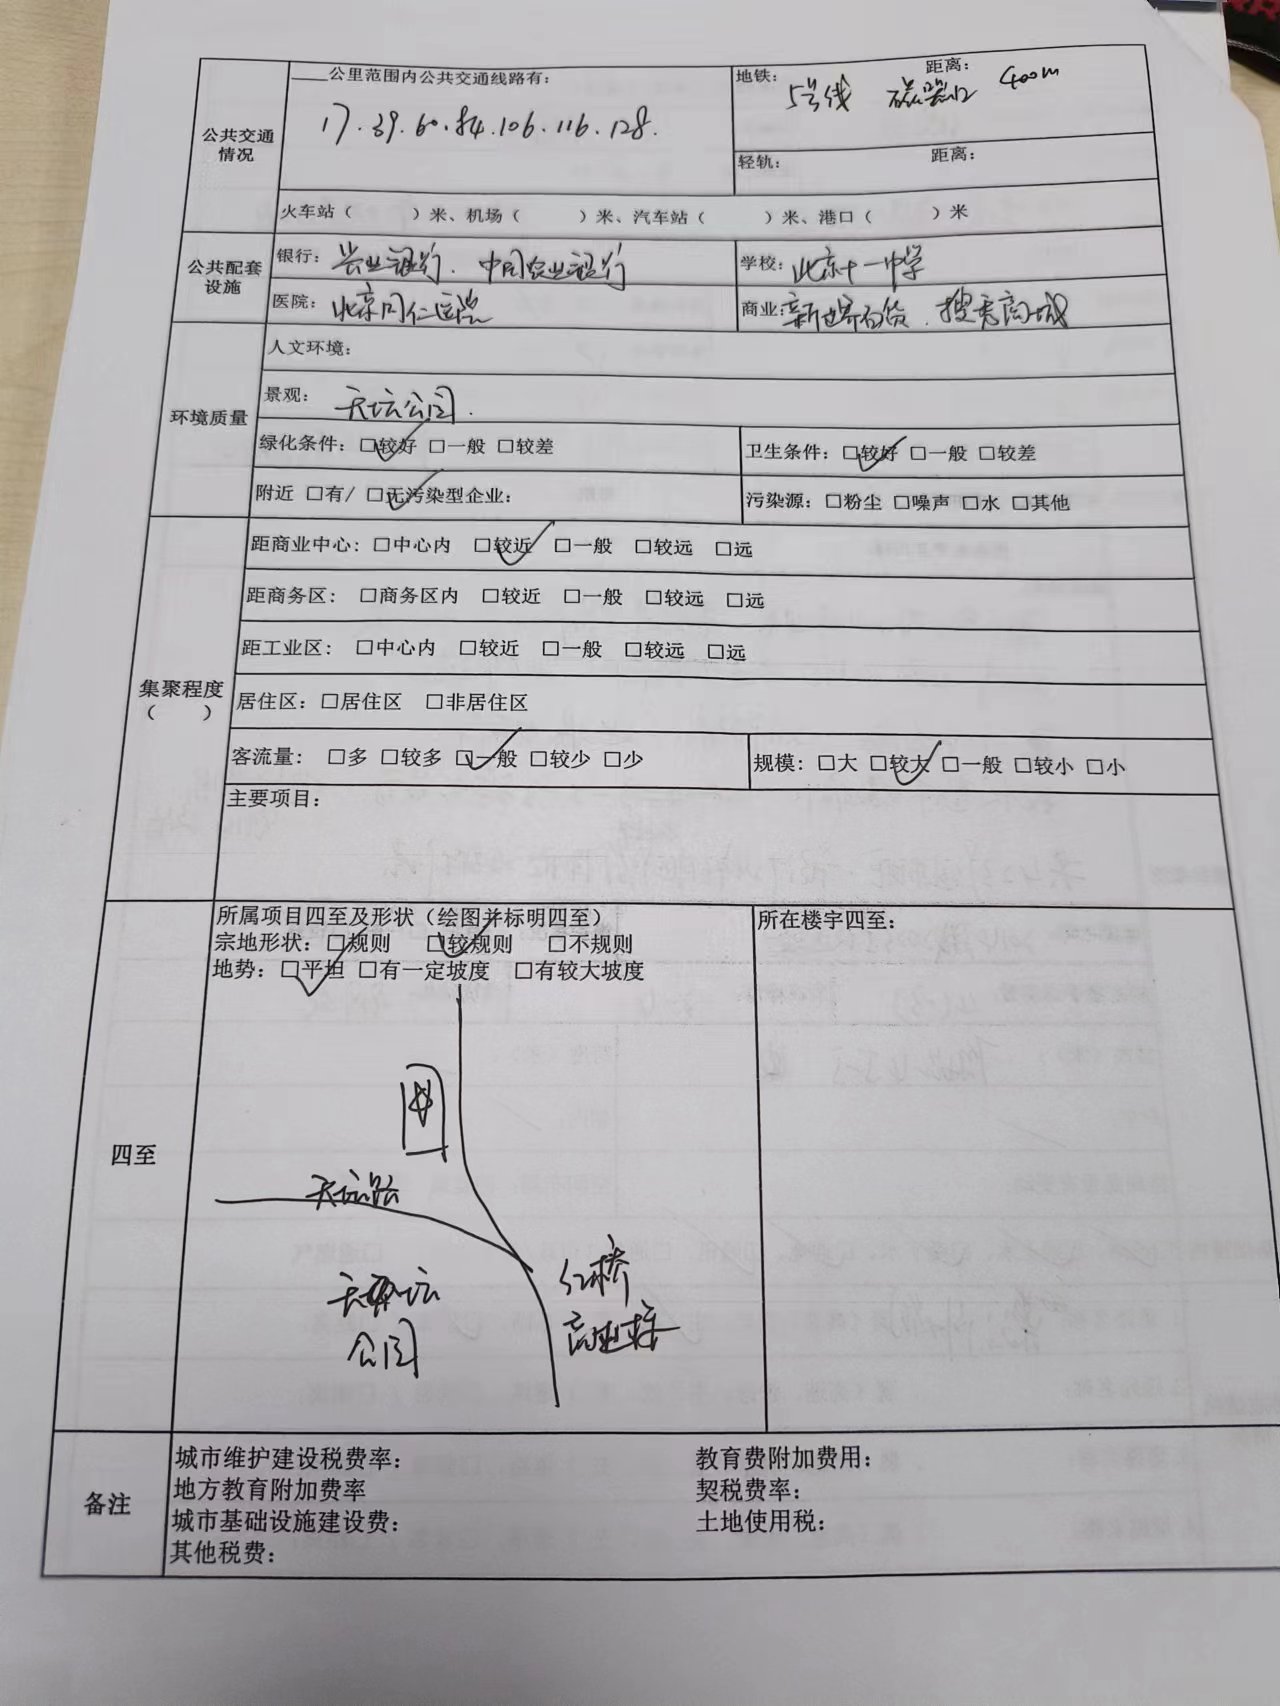 公共交通情况
____公里范围内公共交通线路有：
17.39.60.84.106.116.128.
地铁： 5号线 磁器口 距离： 400m
轻轨： 距离：
火车站（ ）米、机场（ ）米、汽车站（ ）米、港口（ ）米
公共配套设施
银行：兴业银行、中国农业银行 学校：北京十一中学
医院：北京同仁医院 商业：新世界百货、搜秀商城
环境质量
人文环境：
景观：天坛公园.
绿化条件：☑较好 □一般 □较差 卫生条件：☑较好 □一般 □较差
附近 □有/ ☑无污染型企业： 污染源：□粉尘 □噪声 □水 □其他
集聚程度（ ）
距商业中心：□中心内 ☑较近 □一般 □较远 □远
距商务区： □商务区内 □较近 □一般 □较远 □远
距工业区： □中心内 □较近 □一般 □较远 □远
居住区：□居住区 □非居住区
客流量： □多 □较多 ☑一般 □较少 □少 规模：□大 ☑较大 □一般 □较小 □小
主要项目：
四至
所属项目四至及形状（绘图并标明四至） 所在楼宇四至：
宗地形状：□规则 ☑较规则 □不规则
地势：☑平坦 □有一定坡度 □有较大坡度
天坛路
天坛
公园
红桥
商业楼
备注
城市维护建设税费率： 教育费附加费用：
地方教育附加费率 契税费率：
城市基础设施建设费： 土地使用税：
其他税费：